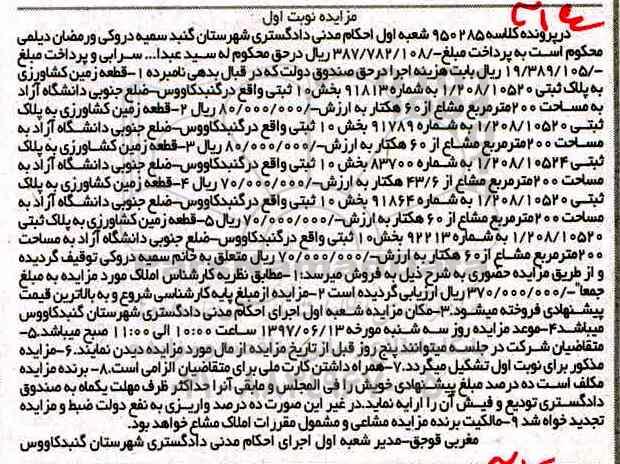 مزایده نوبت اول
درپرونده کلاسه ۹۵۰۲۸۵ شعبه اول احکام مدنی دادگستری شهرستان گنبد سمیه دروکی ورمضان دیلمی
محکوم است به پرداخت مبلغ-/۳۸۷/۷۸۲/۱۰۸ ریال درحق محکوم له سید عبدا... سرابی و پرداخت مبلغ
-/۱۹/۳۸۹/۱۰۵ ریال بابت هزینه اجرا درحق صندوق دولت که در قبال بدهی نامبرده ۱-قطعه زمین کشاورزی
به پلاک ثبتی ۱/۲۰۸/۱۰۵۲۰ به شماره ۹۱۸۱۳ بخش ۱۰ ثبتی واقع درگنبدکاووس-ضلع جنوبی دانشگاه آزاد
به مساحت ۲۰۰مترمربع مشاع از۶۰ هکتار به ارزش-/۸۰/۰۰۰/۰۰۰ ریال ۲-قطعه زمین کشاورزی به پلاک
ثبتی ۱/۲۰۸/۱۰۵۲۰ به شماره ۹۱۷۸۹ بخش ۱۰ ثبتی واقع درگنبدکاووس-ضلع جنوبی دانشگاه آزاد به
مساحت ۲۰۰مترمربع مشاع از ۶۰ هکتار به ارزش-/۸۰/۰۰۰/۰۰۰ ریال ۳-قطعه زمین کشاورزی به پلاک
ثبتی ۱/۲۰۸/۱۰۵۲۴ به شماره ۸۳۷۰۰ بخش ۱۰ ثبتی واقع درگنبدکاووس-ضلع جنوبی دانشگاه آزاد به
مساحت ۲۰۰مترمربع مشاع از ۴۳/۶ هکتار به ارزش-/۷۰/۰۰۰/۰۰۰ ریال ۴-قطعه زمین کشاورزی به پلاک
ثبتی ۱/۲۰۸/۱۰۵۲۰ به شماره ۹۱۸۶۴ بخش ۱۰ ثبتی واقع درگنبدکاووس-ضلع جنوبی دانشگاه آزاد به
مساحت ۲۰۰مترمربع مشاع از ۶۰ هکتار به ارزش-/۷۰/۰۰۰/۰۰۰ ریال ۵-قطعه زمین کشاورزی به پلاک ثبتی
۱/۲۰۸/۱۰۵۲۰ به شماره ۹۲۲۱۳ بخش ۱۰ ثبتی واقع درگنبدکاووس-ضلع جنوبی دانشگاه آزاد به مساحت
۲۰۰مترمربع مشاع از۶۰ هکتار به ارزش-/۷۰/۰۰۰/۰۰۰ ریال متعلق به خانم سمیه دروکی توقیف گردیده
و از طریق مزایده حضوری به شرح ذیل به فروش میرسد:۱-مطابق نظریه کارشناس املاک مورد مزایده به مبلغ
جمعا"-/۳۷۰/۰۰۰/۰۰۰ ریال ارزیابی گردیده است ۲-مزایده ازمبلغ پایه کارشناسی شروع و به بالاترین قیمت
پیشنهادی فروخته میشود.۳-مکان مزایده شعبه اول اجرای احکام مدنی دادگستری شهرستان گنبدکاووس
میباشد۴-موعد مزایده روز سه شنبه مورخه ۱۳۹۷/۰۶/۱۳ ساعت ۱۰:۰۰ الی ۱۱:۰۰ صبح میباشد.۵-
متقاضیان شرکت در جلسه میتوانند پنج روز قبل از تاریخ مزایده از مال مورد مزایده دیدن نمایند.۶-مزایده
مذکور برای نوبت اول تشکیل میگردد.۷-همراه داشتن کارت ملی برای متقاضیان الزامی است.۸- برنده مزایده
مکلف است ده درصد مبلغ پیشنهادی خویش را فی المجلس و مابقی آنرا حداکثر ظرف مهلت یکماه به صندوق
دادگستری تودیع و فیش آن را ارایه نماید.در غیر این صورت ده درصد واریزی به نفع دولت ضبط و مزایده
تجدید خواه شد ۹-مالکیت برنده مزایده مشاعی و مشمول مقررات املاک مشاع خواهد بود.
مغربی قوجق-مدیر شعبه اول اجرای احکام مدنی دادگستری شهرستان گنبدکاووس